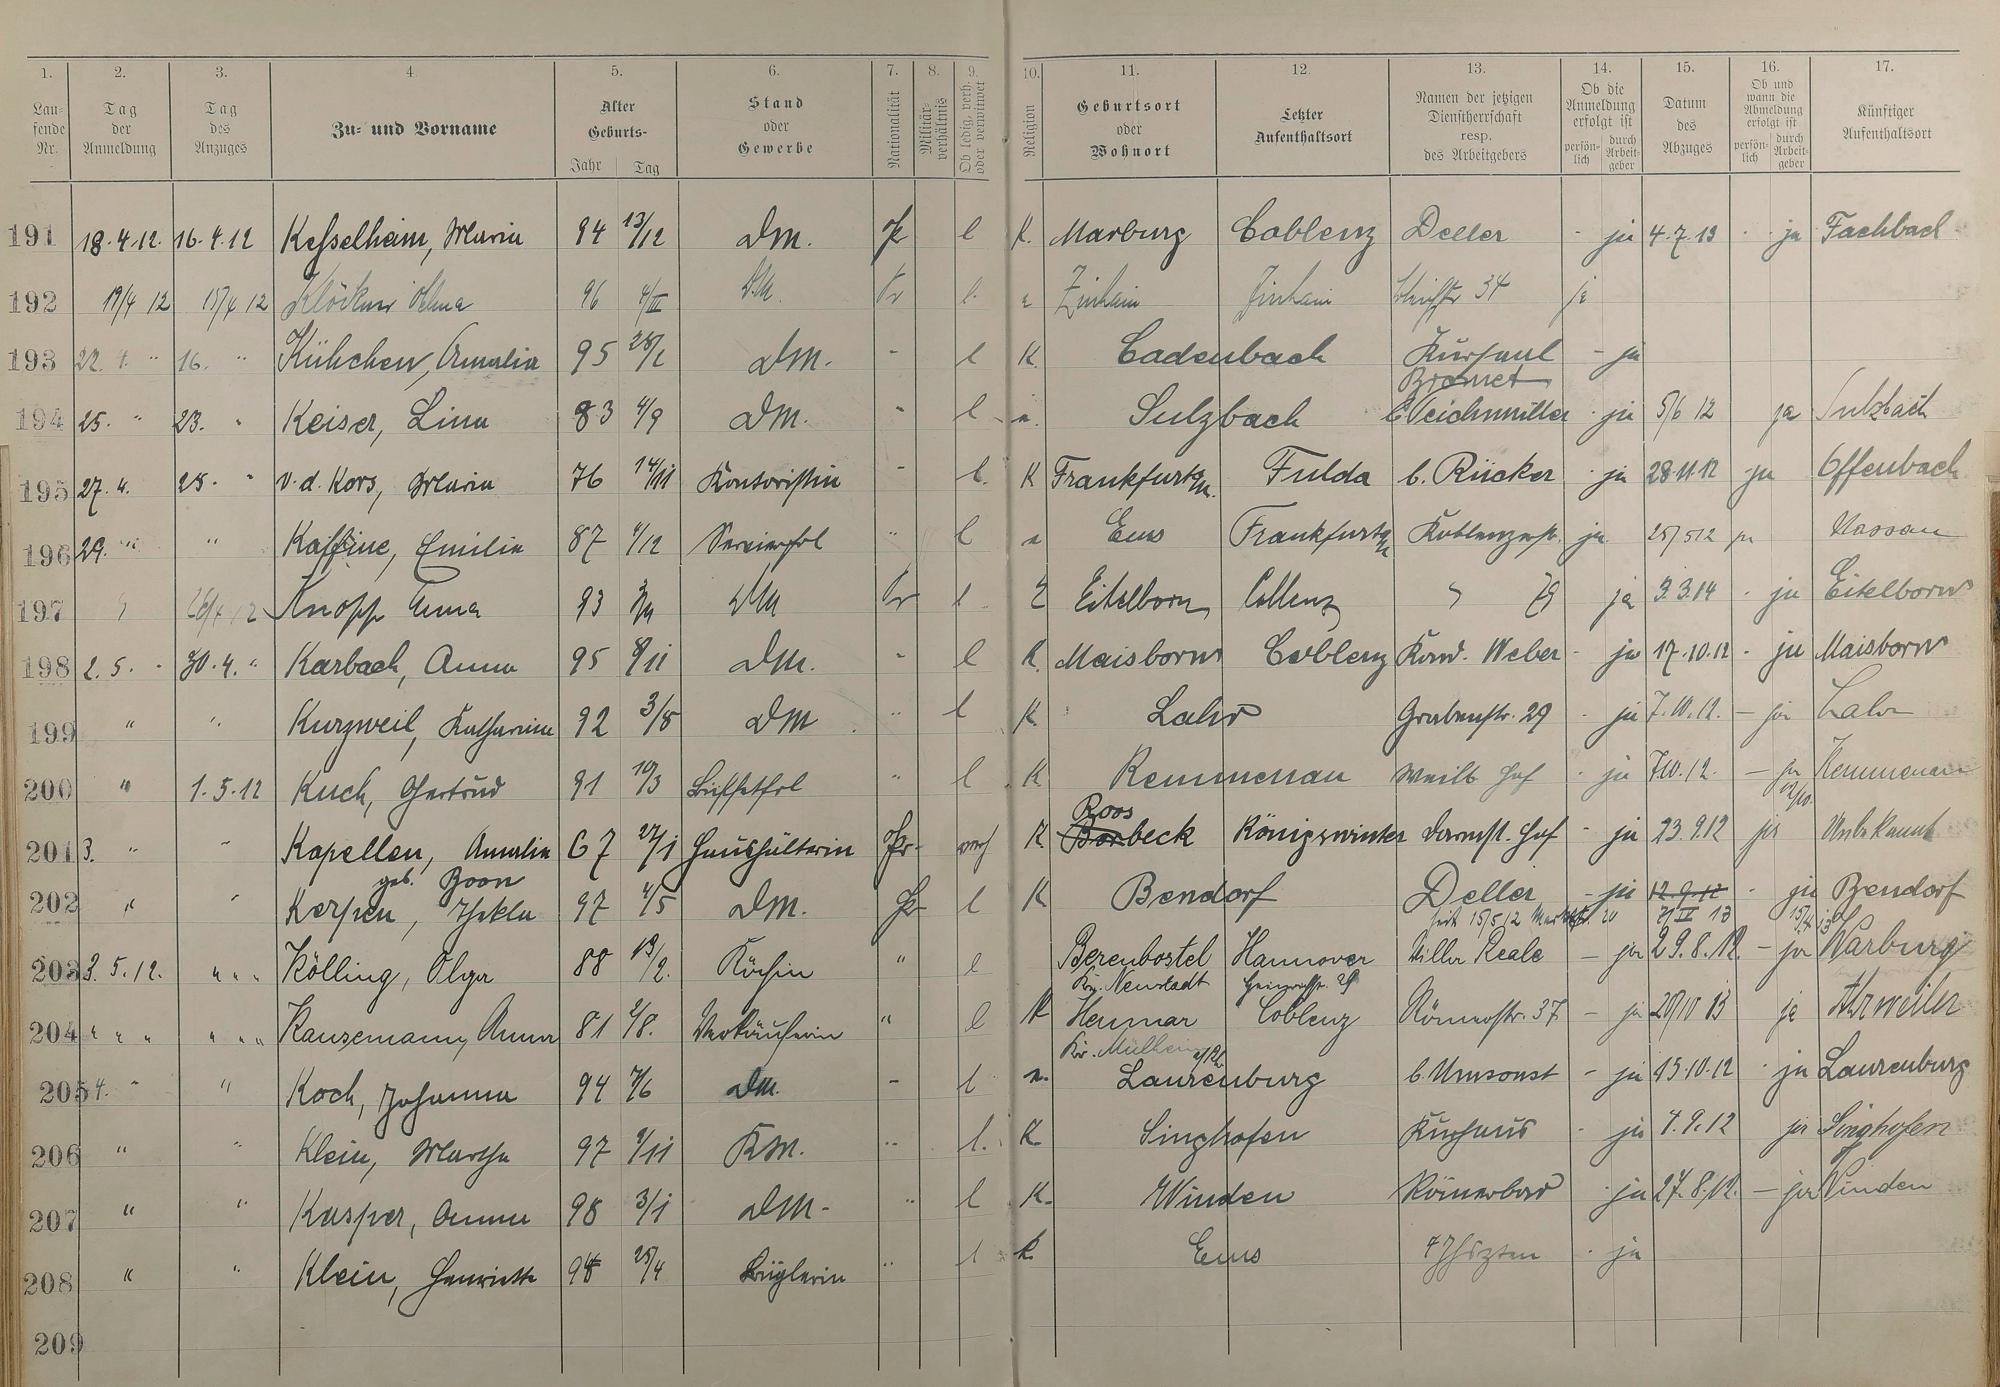 1. 2. 3. 4. 5. 6. 7. 8. 9. 10. 11. 12. 13. 14. 15. 16. 17.
Lau-
fende
Nr.
Tag
der
Anmeldung
Tag
des
Anzuges
Zu- und Vorname
Alter
Geburts-
Jahr Tag
Stand
oder
Gewerbe
Nationalität
Militär-
verhältnis
Ob ledig, verh.
oder verwitwet
Religion
Geburtsort
oder
Wohnort
Letzter
Aufenthaltsort
Namen der jetzigen
Dienstherrschaft
resp.
des Arbeitgebers
Ob die
Anmeldung
erfolgt ist
persön-
lich
durch
Arbeit-
geber
Datum
des
Abzuges
Ob und
wann die
Abmeldung
erfolgt ist
persön-
lich
durch
Arbeit-
geber
Künftiger
Aufenthaltsort
191 18.4.12. 16.4.12 Kesselheim, Maria 94 13/12 DM. Pr l K. Marburg Coblenz Deller - ja 4.7.13 - ja Fachbach
192 19/4 12 15/4 12 96 4/III D.M. Pr l. 34 ja
193 22. 4. " 16. " Kühchen, Amalia 95 DM. - l K. Cadenbach Kursaal - ja
Bromet
194 25. " 23. " Keiser, Lina 83 4/9 DM. - l Sulzbach Teichmüller - ja 5/6 12 ja Sulzbach
195 27. 4. 25. " v. d. Kors, Maria 76 14/11 Kontoristin - l. K Frankfurt Fulda b. Rücker - ja 28.11.12 ja Offenbach
196 29. " " Emilie 87 4/12 Servierfrl " l Ems Frankfurt ja 25/5 12 ja Nassau
197 " 26/4 12 Knopp Anna 93 DM Pr l Eitelborn Coblenz " ja 3.3.14 - ja Eitelborn
198 2. 5. " 30. 4. " Karbach, Anna 95 8/11 DM. - l K. Maisborn Coblenz Kond. Weber - ja 17.10.12 - ja Maisborn
199 " " Kurzweil, Katharina 92 3/8 DM " l K Lahr Grabenstr. 29 - ja 7.10.12. - ja Lahr
200 " 1.5.12 Kuch, Gertrud 91 10/3 Büffetfrl " l K Kemmenau Weilb. Hof - ja 7.10.12. - ja Kemmenau
201 3. " " Kapellen, Amalia 67 27/1 Haushälterin Pr. verh K Roos
Bonbeck Königswinter Darmst. Hof - ja 23.9.12 ja Unbekannt
geb. Boon
202 " " Kersen, Thekla 97 4/5 DM. Pr. l K Bendorf Deller - ja 12.9.12 - ja Bendorf
seit 15/5 12 21 IV 13
203 3. 5. 12. " " " Kölling, Olga 88 Köchin " l Berenbostel Hannover Villa Reale - ja 29.8.12. - ja Warburg
Kr. Neustadt
204 " " " " " " Kausemann, Anna 81 2/8. Verkäuferin " l K Heumar Coblenz Römerstr. 37 - ja ja Ahrweiler
Kr. Mülheim a/Rh
205 4. " " Koch, Johanna 94 7/6 DM. - l Laurenburg b. Umsonst - ja 15.10.12 - ja Laurenburg
206 " " Klein, Martha 97 9/11 KM. " l. K Singhofen Kurhaus - ja 4.9.12 ja Singhofen
207 " " Kasper, Anna 98 3/1 DM - " l K. Winden Römerbad - ja 27.8.12. - ja Winden
208 " " Klein, Henriette 94 25/4 Büglerin " l K Ems 4 Thürmen - ja
209